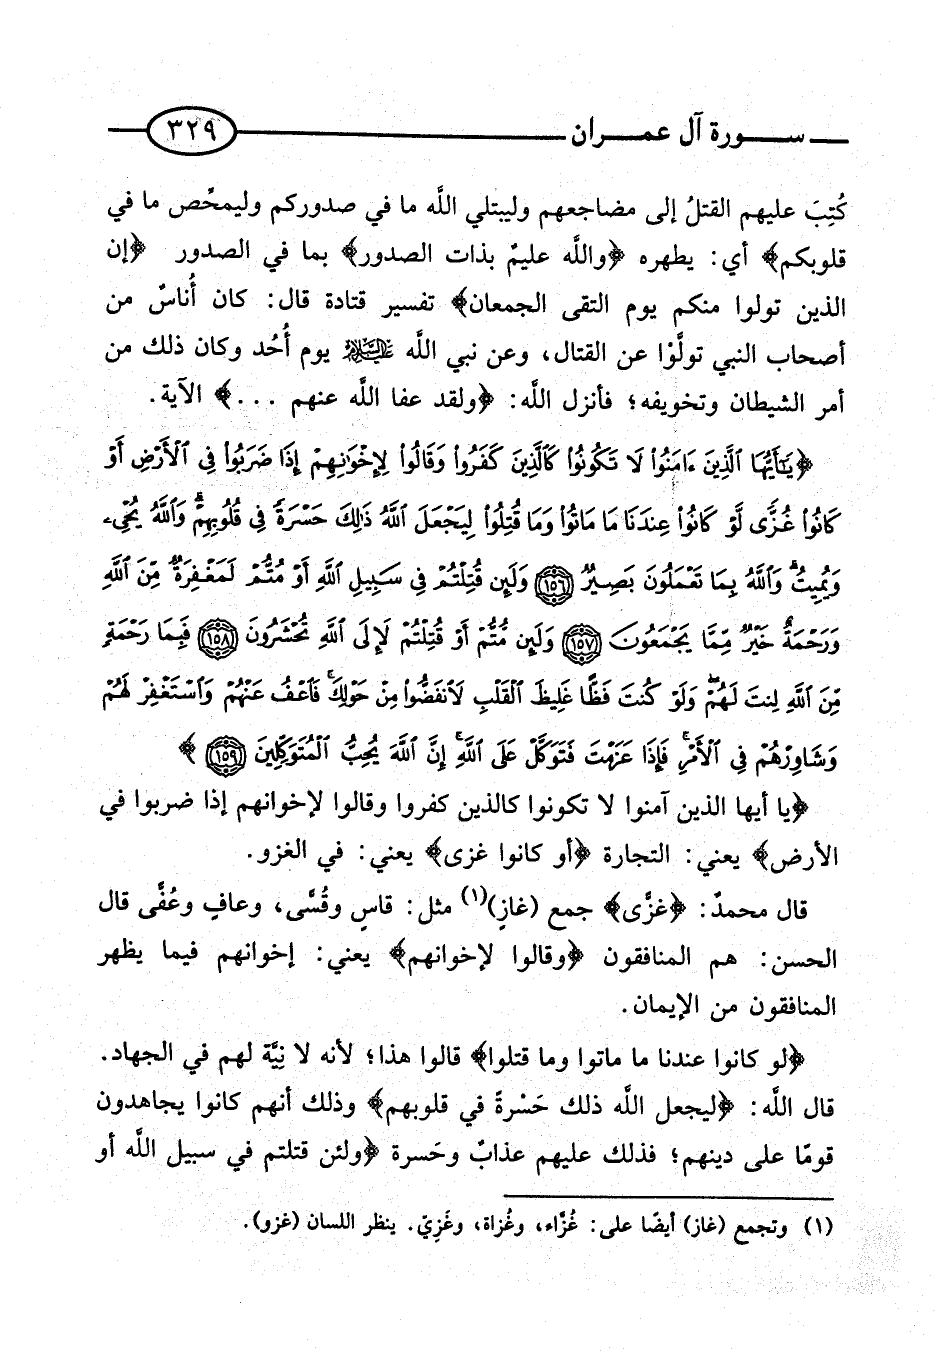 سورة آل عمران ٣٢٩
كُتِبَ عليهم القتلُ إلى مضاجعهم وليبتلي اللَّه ما في صدوركم وليمحِّص ما في
قلوبكم﴾ أي: يطهره ﴿واللَّه عليمٌ بذات الصدور﴾ بما في الصدور ﴿إن
الذين تولوا منكم يوم التقى الجمعان﴾ تفسير قتادة قال: كان أُناسٌ من
أصحاب النبي تولَّوْا عن القتال، وعن نبي اللَّه عليه السلام يوم أُحُد وكان ذلك من
أمر الشيطان وتخويفه؛ فأنزل اللَّه: ﴿ولقد عفا اللَّه عنهم ...﴾ الآية.
﴿يَٰٓأَيُّهَا ٱلَّذِينَ ءَامَنُوا۟ لَا تَكُونُوا۟ كَٱلَّذِينَ كَفَرُوا۟ وَقَالُوا۟ لِإِخْوَٰنِهِمْ إِذَا ضَرَبُوا۟ فِى ٱلْأَرْضِ أَوْ
كَانُوا۟ غُزًّى لَّوْ كَانُوا۟ عِندَنَا مَا مَاتُوا۟ وَمَا قُتِلُوا۟ لِيَجْعَلَ ٱللَّهُ ذَٰلِكَ حَسْرَةً فِى قُلُوبِهِمْ ۗ وَٱللَّهُ يُحْىِۦ
وَيُمِيتُ ۗ وَٱللَّهُ بِمَا تَعْمَلُونَ بَصِيرٌ ﴿١٥٦﴾ وَلَئِن قُتِلْتُمْ فِى سَبِيلِ ٱللَّهِ أَوْ مُتُّمْ لَمَغْفِرَةٌ مِّنَ ٱللَّهِ
وَرَحْمَةٌ خَيْرٌ مِّمَّا يَجْمَعُونَ ﴿١٥٧﴾ وَلَئِن مُّتُّمْ أَوْ قُتِلْتُمْ لَإِلَى ٱللَّهِ تُحْشَرُونَ ﴿١٥٨﴾ فَبِمَا رَحْمَةٍ
مِّنَ ٱللَّهِ لِنتَ لَهُمْ ۖ وَلَوْ كُنتَ فَظًّا غَلِيظَ ٱلْقَلْبِ لَٱنفَضُّوا۟ مِنْ حَوْلِكَ ۖ فَٱعْفُ عَنْهُمْ وَٱسْتَغْفِرْ لَهُمْ
وَشَاوِرْهُمْ فِى ٱلْأَمْرِ ۖ فَإِذَا عَزَمْتَ فَتَوَكَّلْ عَلَى ٱللَّهِ ۚ إِنَّ ٱللَّهَ يُحِبُّ ٱلْمُتَوَكِّلِينَ ﴿١٥٩﴾ ﴾
﴿يا أيها الذين آمنوا لا تكونوا كالذين كفروا وقالوا لإخوانهم إذا ضربوا في
الأرض﴾ يعني: التجارة ﴿أو كانوا غزى﴾ يعني: في الغزو.
قال محمدٌ: ﴿غزًّى﴾ جمع (غازٍ)(١) مثل: قاسٍ وقُسًّى، وعافٍ وعُفًّى قال
الحسن: هم المنافقون ﴿وقالوا لإخوانهم﴾ يعني: إخوانهم فيما يظهر
المنافقون من الإيمان.
﴿لو كانوا عندنا ما ماتوا وما قتلوا﴾ قالوا هذا؛ لأنه لا نِيَّة لهم في الجهاد.
قال اللَّه: ﴿ليجعل اللَّه ذلك حَسْرةً في قلوبهم﴾ وذلك أنهم كانوا يجاهدون
قومًا على دينهم؛ فذلك عليهم عذابٌ وحَسرة ﴿ولئن قتلتم في سبيل اللَّه أو
(١) وتجمع (غاز) أيضًا على: غُزَّاء، وغُزاة، وغَزِيّ. ينظر اللسان (غزو).